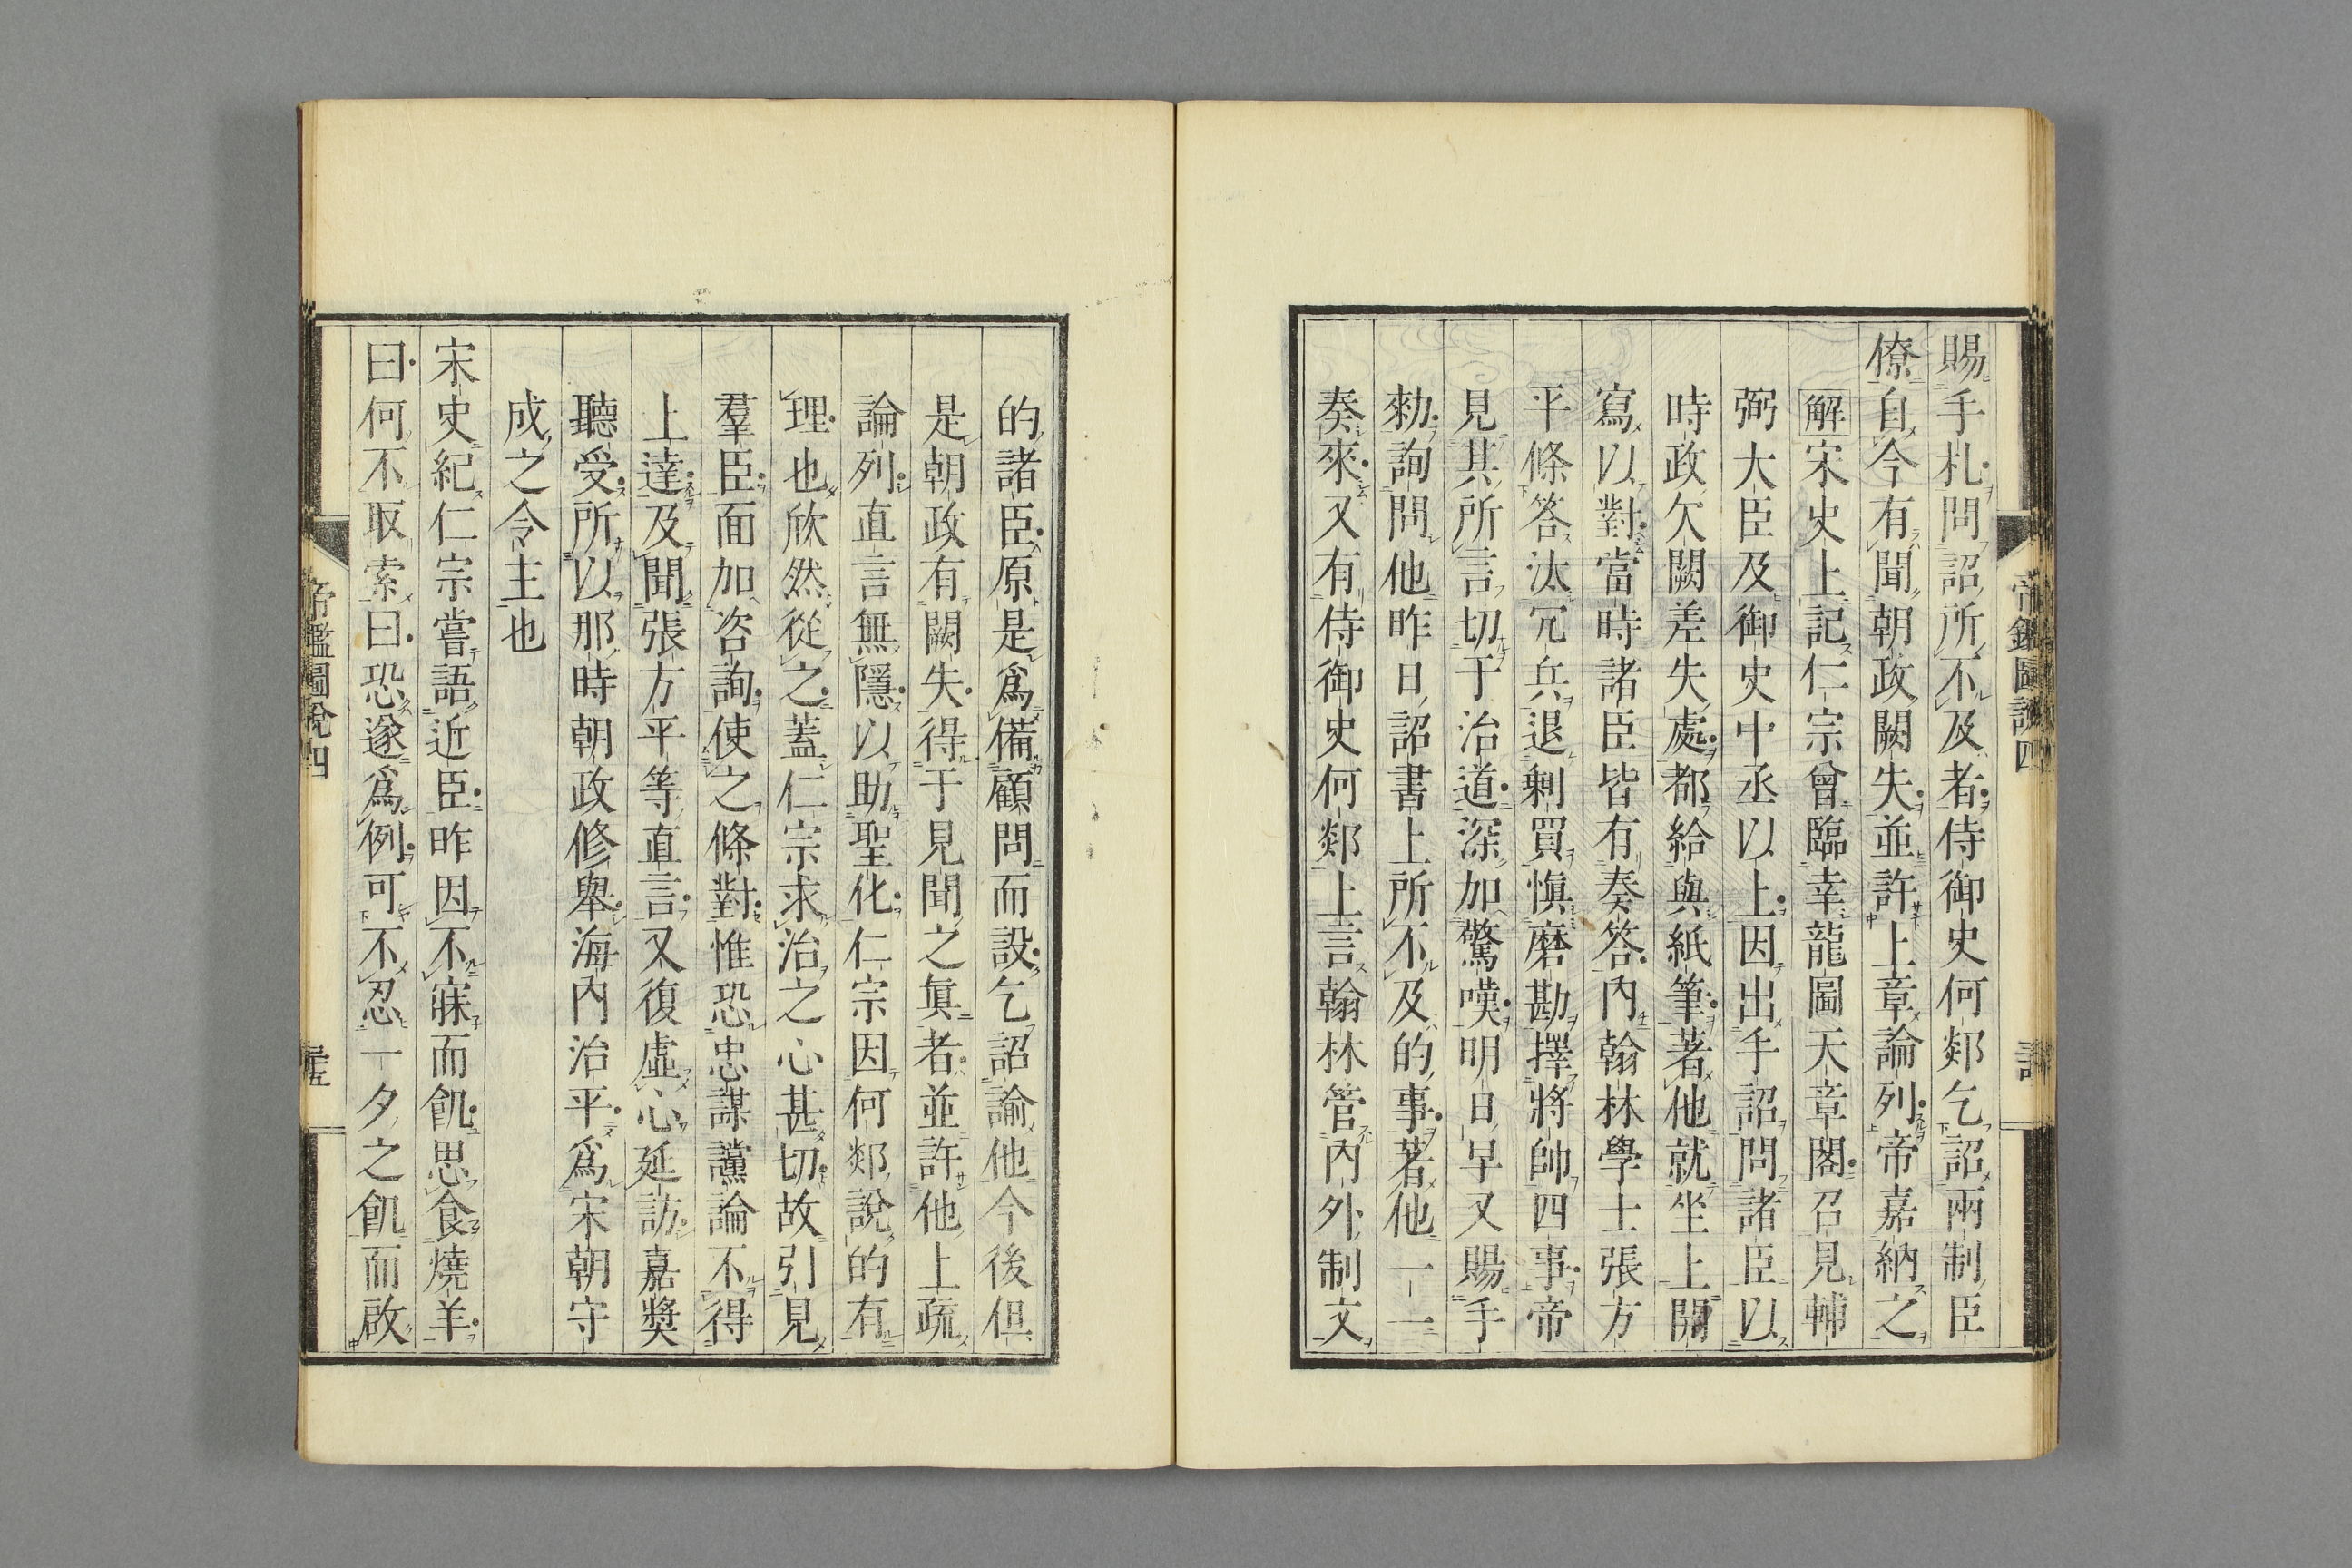 賜手札問詔所不及者侍御史何郯乞詔兩制臣
僚自今有聞朝政闕失並許上章論列帝嘉納之
解宋史上記仁宗曾臨幸龍圖天章閣召見輔
弼大臣及御史中丞以上因出手詔問諸臣以
時政欠闕差失處都給與紙筆著他就坐上開
寫以對當時諸臣皆有奏答內翰林學士張方
平條答汰冗兵退剰買慎磨勘擇將帥四事帝
見其所言切于治道深加驚嘆明日早又賜手
勑詢問他昨日詔書上所不及的事著他一一
奏來又有侍御史何郯上言翰林管內外制文
的諸臣原是爲備顧問而設乞詔諭他今後但
是朝政有闕失得于見聞之眞者並許他上疏
論列直言無隱以助聖化仁宗因何郯說的有
理也欣然從之蓋仁宗求治之心甚切故引見
羣臣面加咨詢使之條對惟恐忠謀讜論不得
上達及聞張方平等直言又復虛心延訪嘉獎
聽受所以那時朝政修舉海內治平爲宋朝守
成之令主也
宋史紀仁宗嘗語近臣昨因不寐而飢思食燒羊
曰何不取索曰恐遂爲例可不忍一夕之飢而啟
帝鑑圖說四